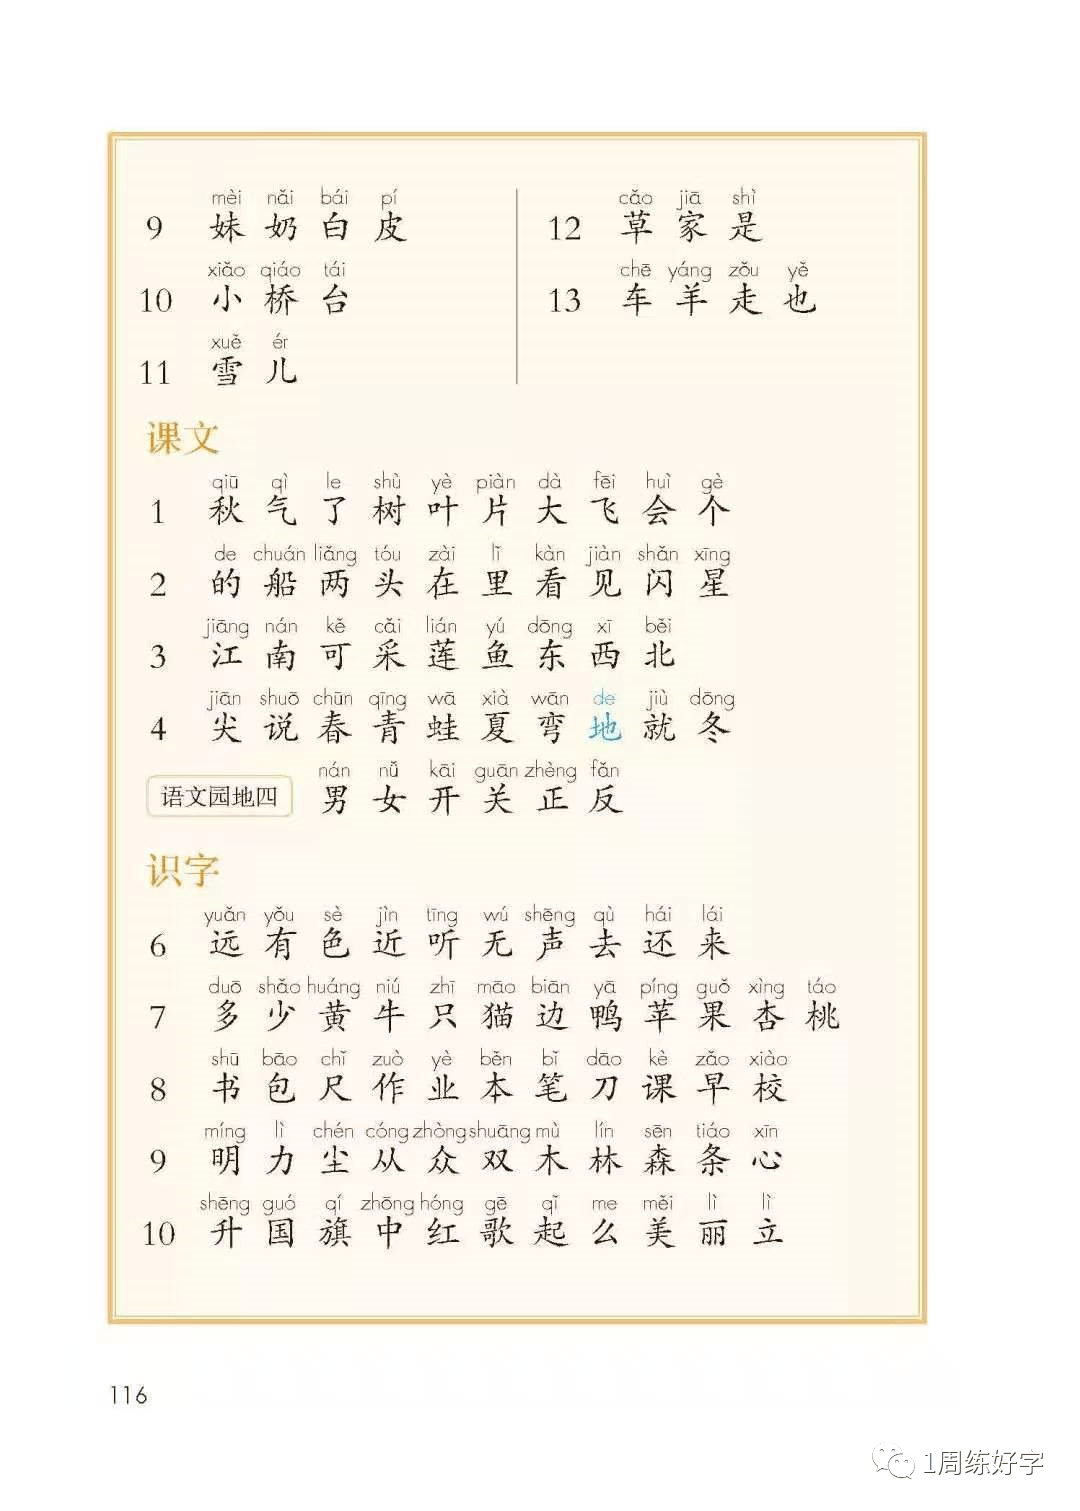 mèi nǎi bái pí
9 妹 奶 白 皮
xiǎo qiáo tái
10 小 桥 台
xuě ér
11 雪 儿
cǎo jiā shì
12 草 家 是
chē yáng zǒu yě
13 车 羊 走 也
课文
qiū qì le shù yè piàn dà fēi huì gè
1 秋 气 了 树 叶 片 大 飞 会 个
de chuán liǎng tóu zài lǐ kàn jiàn shǎn xīng
2 的 船 两 头 在 里 看 见 闪 星
jiāng nán kě cǎi lián yú dōng xī běi
3 江 南 可 采 莲 鱼 东 西 北
jiān shuō chūn qīng wā xià wān de jiù dōng
4 尖 说 春 青 蛙 夏 弯 地 就 冬
nán nǚ kāi guān zhèng fǎn
语文园地四 男 女 开 关 正 反
识字
yuǎn yǒu sè jìn tīng wú shēng qù hái lái
6 远 有 色 近 听 无 声 去 还 来
duō shǎo huáng niú zhī māo biān yā píng guǒ xìng táo
7 多 少 黄 牛 只 猫 边 鸭 苹 果 杏 桃
shū bāo chǐ zuò yè běn bǐ dāo kè zǎo xiào
8 书 包 尺 作 业 本 笔 刀 课 早 校
míng lì chén cóng zhòng shuāng mù lín sēn tiáo xīn
9 明 力 尘 从 众 双 木 林 森 条 心
shēng guó qí zhōng hóng gē qǐ me měi lì lì
10 升 国 旗 中 红 歌 起 么 美 丽 立
116
1周练好字